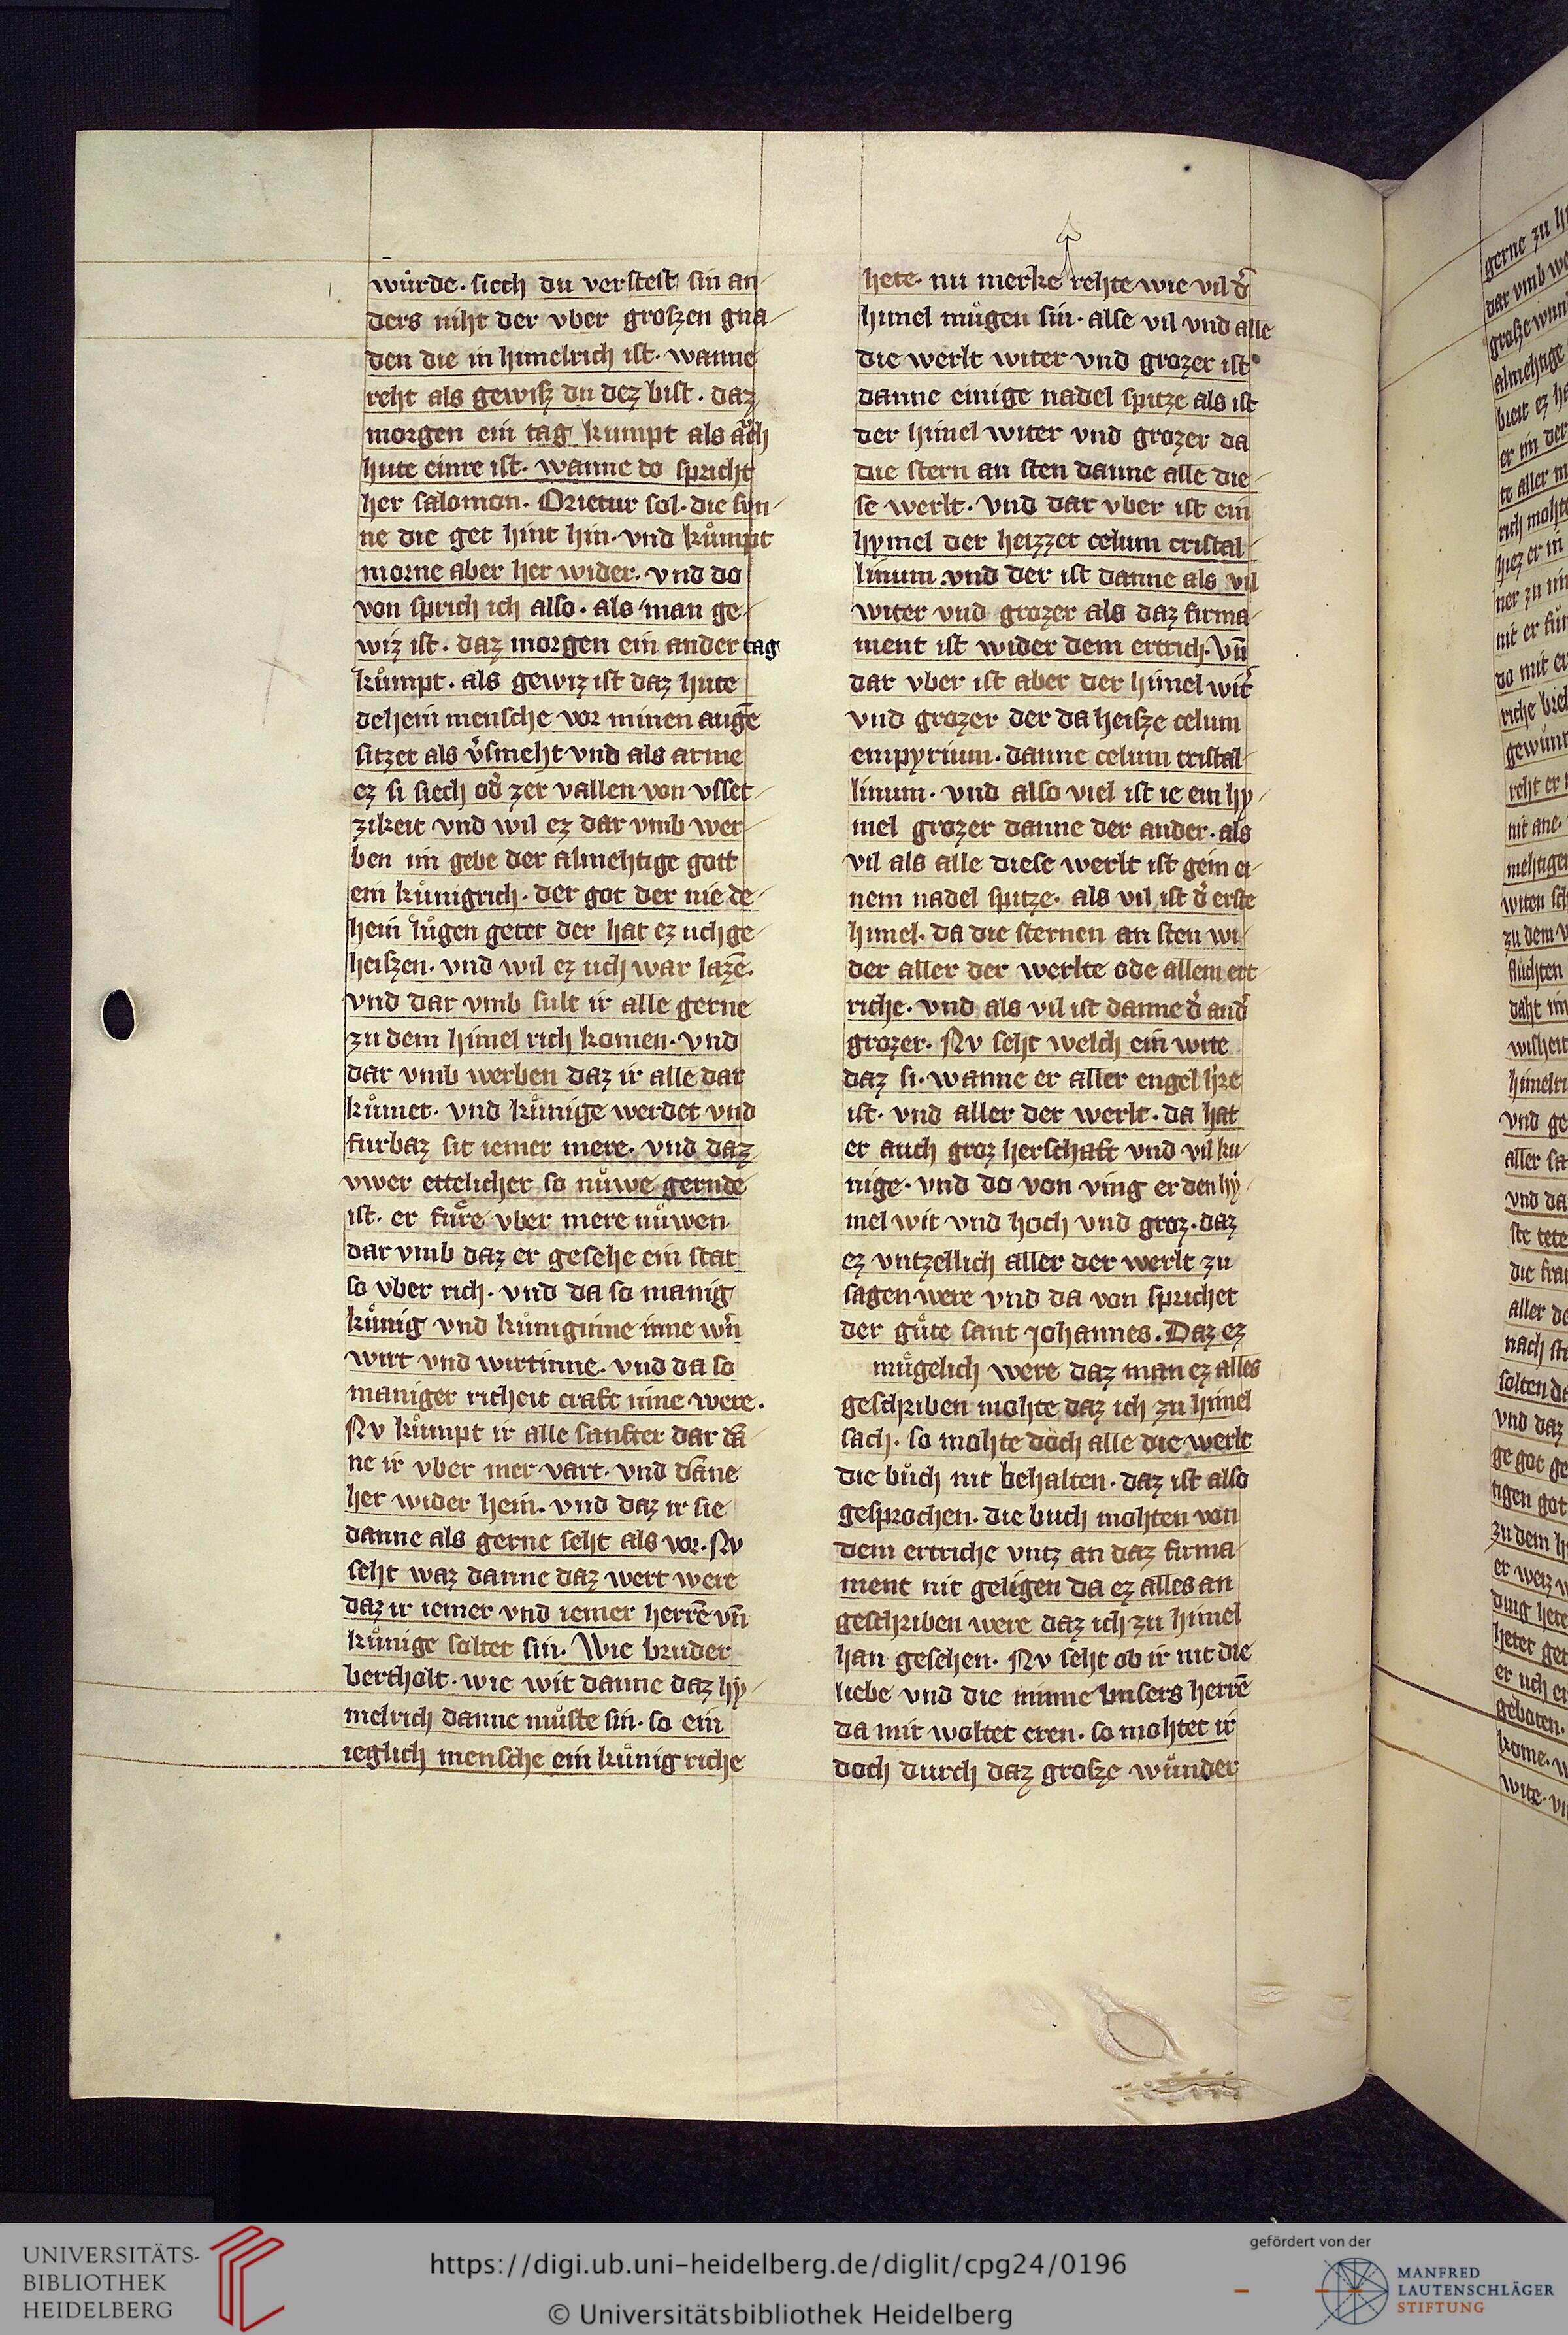 wůrde. siech du verstest sin an
ders niht der vber groszen gna
den die in himelrich ist. wanne
reht als gewisz du dez bist. daz
morgen ein tag kumpt als auch
hute einre ist. wanne do spricht
her salomon. Orietur sol. die sun
ne die get hint hin. vnd kůmpt
morne aber her wider. vnd do
von sprich ich also. als man ge
wiz ist. daz morgen ein ander tag
kůmpt. als gewiz ist daz hute
dehein mensche vor minen auge̅
sitzet als v̓smeht vnd als arme
ez si siech od̓ zer vallen von vsset
zikeit vnd wil ez dar vmb wer
ben im gebe der almehtige gott
ein kůnigrich. der got der nie de
hein lůgen getet der hat ez uch ge
heiszen. vnd wil ez uch war laze̅.
vnd dar vmb sult ir alle gerne
zu dem himel rich komen. vnd
dar vmb werben daz ir alle dar
kůmet. vnd kůnige werdet vnd
furbaz sit iemer mere. vnd daz
vwer ettelicher so nůwe gernde
ist. er fůre vber mere nůwen
dar vmb daz er gesehe ein stat
so vber rich. vnd da so manig
kůnig vnd kůniginne inne wn̅
wirt vnd wirtinne. vnd da so
maniger richeit craft inne were.
Nv kůmpt ir alle sanfter dar da̅
ne ir vber mer vart. vnd da̅ne
her wider hein. vnd daz ir sie
danne als gerne seht als vor. Nv
seht waz danne daz wert were
daz ir iemer vnd iemer herre̅ vn̅
kůnige soltet sin. Wie bruder
bertholt. wie wit danne daz hy
melrich danne můste sin. so ein
ieglich mensche ein kůnig riche
hete. nu merke rehte wie vil d̓
himel můgen sin. alse vil vnd alle
die werlt witer vnd grozer ist
danne einige nadel spitze als ist
der himel witer vnd grozer da
die stern an sten danne alle die
se werlt. vnd dar vber ist ein
hymel der heizzet celum cristal
linum. vnd der ist danne als vil
witer vnd grozer als daz firma
ment ist wider dem ertrich. Vn̅
dar vber ist aber der himel wit̓
vnd grozer der da heisze celum
empyrium. danne celum cristal
linum. vnd also viel ist ie ein hy
mel grozer danne der ander. als
vil als alle diese werlt ist gein ei
nem nadel spitze. als vil ist d̓ erste
himel. da die sternen an sten wi
der aller der werlte ode allem ert
riche. vnd als vil ist danne d̓ and̓
grozer. Nv seht welch ein wite
daz si. wanne er aller engel h̓re
ist. vnd aller der werlt. da hat
er auch groz herschaft vnd vil ku
nige. vnd do von ving er den hy
mel wit vnd hoch vnd groz. daz
ez vntzellich aller der werlt zu
sagen were vnd da von sprichet
der gůte sant Johannes. Daz ez
můgelich were daz man ez alles
geschriben mohte daz ich zu himel
sach. so mohte doch alle die werlt
die bůch nit behalten. daz ist also
gesprochen. die buch mohten von
dem ertriche vntz an daz firma
ment nit geligen da ez alles an
geschriben were daz ich zu himel
han gesehen. Nv seht ob ir nit die
liebe vnd die minne vnsers herre̅
da mit woltet eren. so mohtet ir
doch durch daz grosze wůnder
UNIVERSITÄTS-
BIBLIOTHEK
HEIDELBERG
https://digi.ub.uni-heidelberg.de/diglit/cpg24/0196
© Universitätsbibliothek Heidelberg
gefördert von der
MANFRED
LAUTENSCHLÄGER
STIFTUNG